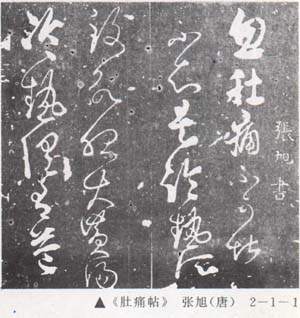 張旭書
忽肚痛不可堪
不知是冷熱所
致欲服大黃湯
冷熱俱有益
▲《肚痛帖》 张旭(唐) 2-1-1